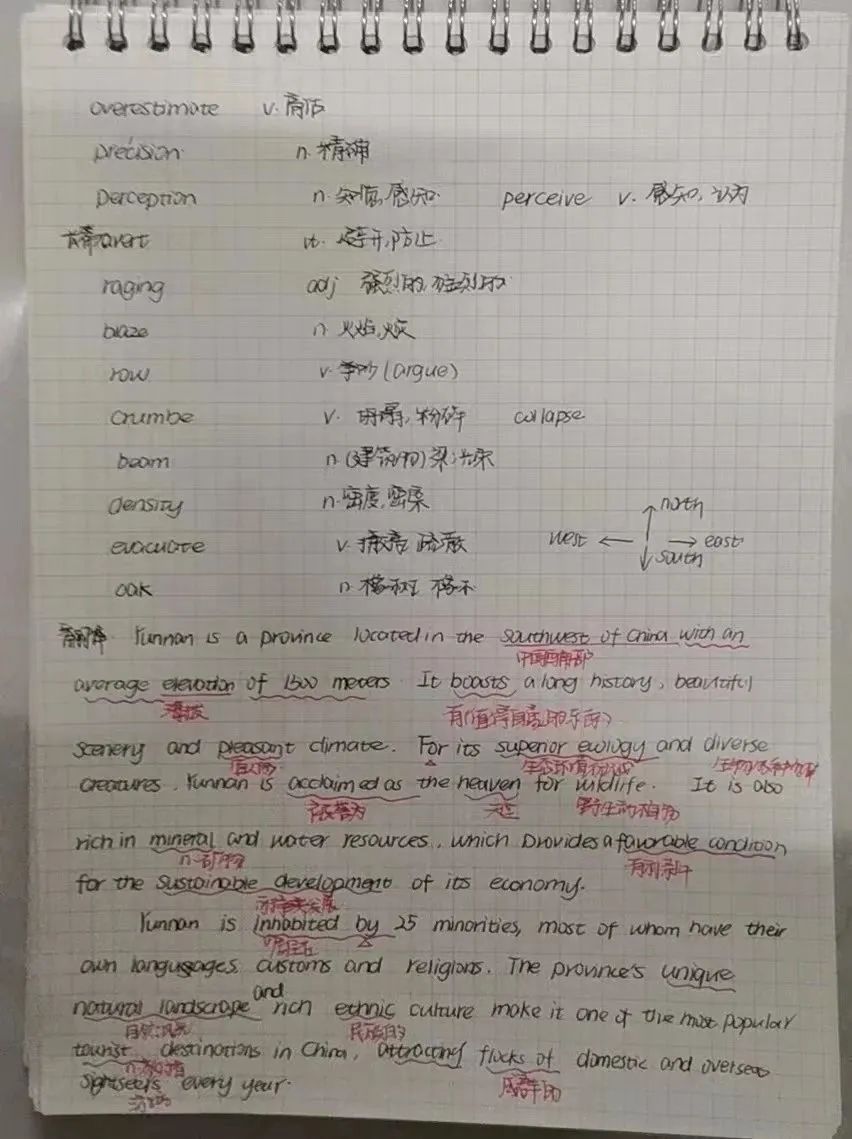 overestimate v. 高估
précision n. 精确
perception n. 知觉,感知 perceive v. 感知,认为
avert vt. 避开,防止
raging adj 强烈的,猛烈的
blaze n 火焰,火灾
row v. 争吵(argue)
crumbe v. 崩塌,粉碎 collapse
beam n.(建筑物)梁;光束
density n. 密度,密集
evacuate v. 撤离,疏散
north
west east
south
oak n. 橡树 橡木
翻译. Yunnan is a province located in the southwest of China with an
中国西南部
average elevation of 1500 meters. It boasts a long history, beautiful
海拔 有(值得自豪的东西)
scenery and pleasant climate. For its superior ecology and diverse
宜人的 生态环境优越 生物多种多样
creatures, Yunnan is acclaimed as the heaven for wildlife. It is also
被誉为 天堂 野生动植物
rich in mineral and water resources, which provides a favorable condition
n.矿物 有利条件
for the sustainable development of its economy.
可持续发展
Yunnan is inhabited by 25 minorities, most of whom have their
居住在
own languages, customs and religions. The province's unique
natural landscrape and rich ethnic culture make it one of the most popular
自然风光 民族的
tourist destinations in China, attracting flocks of domestic and overseas
n. 成群的
sightseers every year.
游客